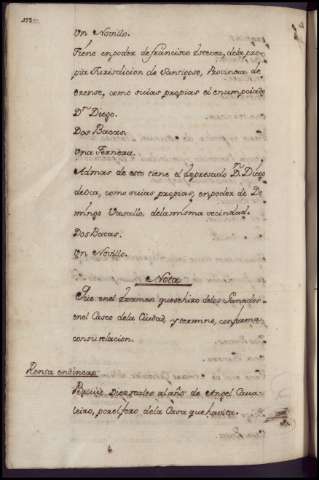 Un Novillo.
Tiene en poder de francisco esteves, dela pro-
pia Jurisdicion de Santigoso, Provincia de
orense, como suias propias el enumpciado
Dn. Diego.
Dos Bacas.
Una Ternera.
Además de esto tiene el expresado Dn. Diego
de oca, como suias propias, en poder de Do-
mingo Vasallo, dela misma vecindad.
Dos Bacas.
Un Novillo.
Nota
Que en el examen que se hizo de los
en el Casco dela Ciudad, y termino, conforma
con su relacion.
Renta en dinero
Percive Diez reales al año de Angel Cava-
leiro, por el foro dela Casa que havita.